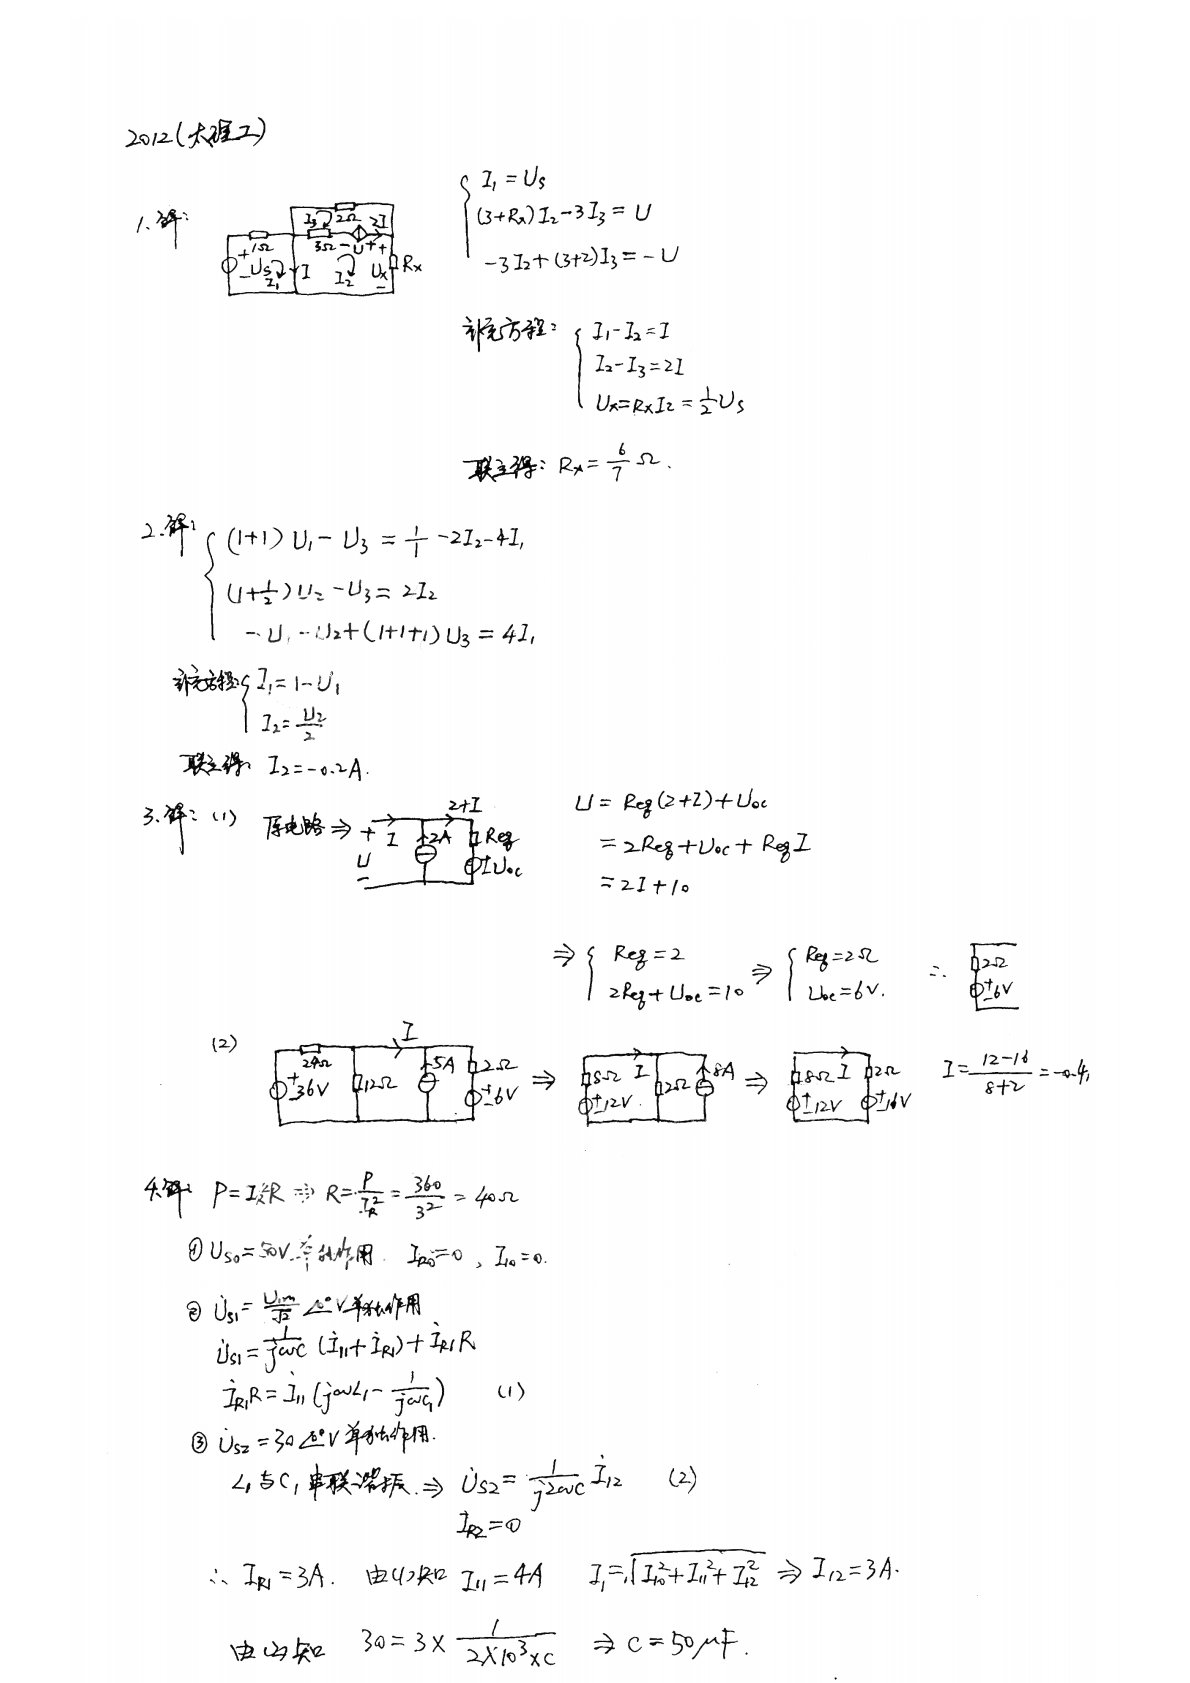 2012(太理工)
1.解:
I₃ 2Ω 2I
1Ω 3Ω - U + +
+ Us - I₁ I I₂ Ux Rx -
I₁ = Us
(3+Rx)I₂-3I₃ = U
-3I₂+(3+2)I₃ = -U
补充方程:
I₁-I₂=I
I₂-I₃=2I
Ux=RxI₂=1/2 Us
联立得: Rx = 6/7 Ω.
2.解:
(1+1)U₁ - U₃ = 1/1 -2I₂-4I₁
(1+1/2)U₂ -U₃ = 2I₂
-U₁ -U₂+(1+1+1)U₃ = 4I₁
补充方程
I₁=1-U₁
I₂=U₂/2
联立得: I₂=-0.2A.
3.解: (1) 原电路 ⇒ + U - I 2A 2+I Req + Uoc
U = Req(2+I)+Uoc
= 2Req+Uoc + ReqI
= 2I+10
⇒ { Req=2
2Req+Uoc=10
⇒ { Req=2Ω
Uoc=6V.
∴ 2Ω + - 6V
(2) 24Ω + - 36V 12Ω I 5A 2Ω + - 6V ⇒ 8Ω I + - 12V 2Ω 8A ⇒ 8Ω I 2Ω + - 12V + - 16V I = (12-16)/(8+2) = -0.4A
4.解: P=I_R²R ⇒ R= P/I_R² = 360/3² = 40Ω
① Us₀=50V 单独作用. I_R0=0, I₁₀=0.
② U̇s₁= U₁m/√2 ∠0°V单独作用
U̇s₁= 1/jωC (İ₁₁+İ_R1)+İ_R1R
İ_R1R=İ₁₁(jωL₁- 1/jωC₁) (1)
③ U̇s₂=30∠0°V单独作用.
L₁与C₁串联谐振. ⇒ U̇s₂= 1/j2ωC İ₁₂ (2)
İ_R2=0
∴ I_R1=3A. 由(1)知 I₁₁=4A I₁=√(I₁₀²+I₁₁²+I₁₂²) ⇒ I₁₂=3A.
由(2)知 30=3× 1/(2×10³×C) ⇒ C=50μF.